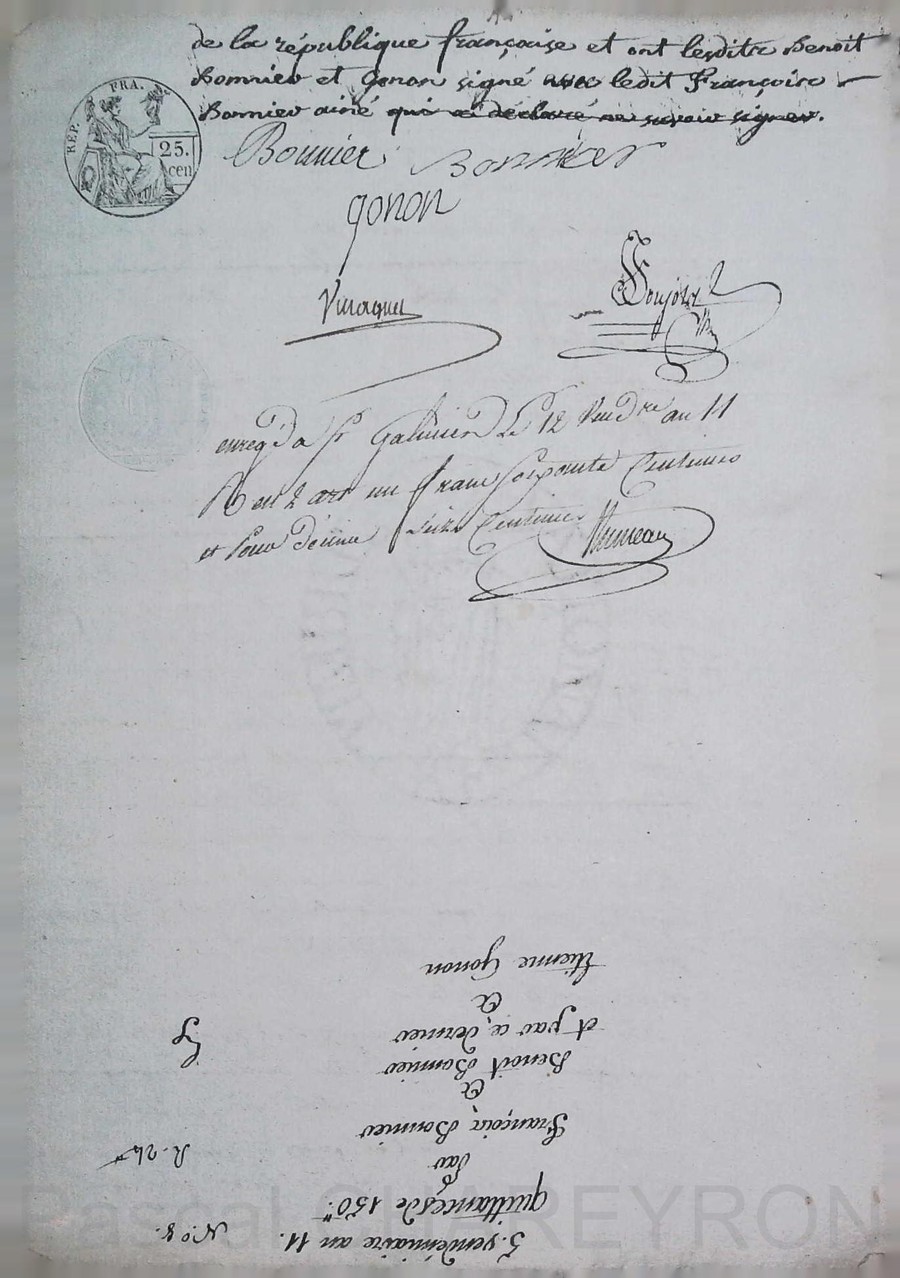 de la république française et ont lesditz Benoit
Bonnier et Gonon signé avec ledit François
Bonnier ainé qui a déclaré ne savoir signer.
RÉP. FRA.
25.
cen
Bonnier Bonnier
gonon
enregd a St Galmier Le 12 Vendre an 11
Reçu un franc soixante Centimes
et pour décime seize Centimes
5. vendémiaire an 11. N.° 8.
quittances de 150.
Par
François Bonnier R. 24
a
Benoit Bonnier
et par ce dernier
a
Etienne Gonon
Pascal CHAREYRON